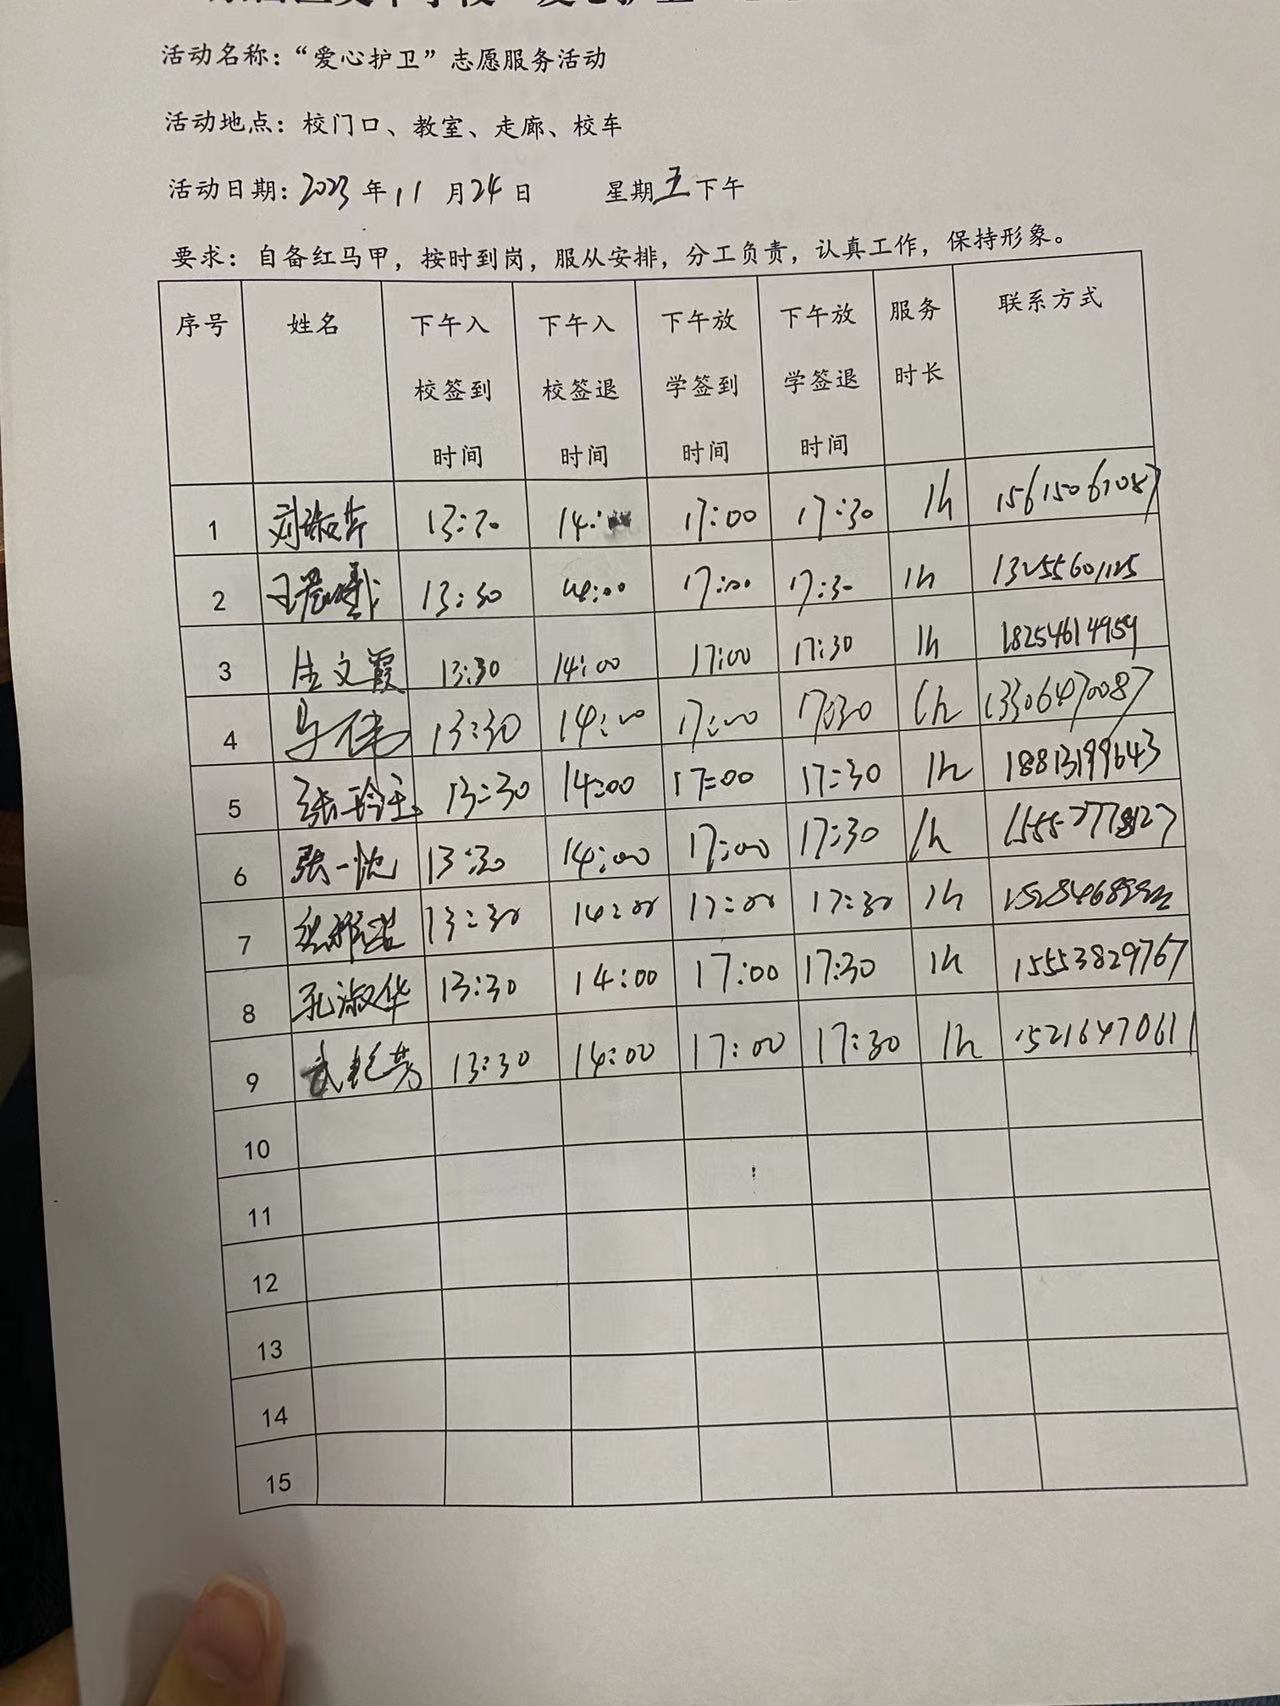 活动名称：“爱心护卫”志愿服务活动
活动地点：校门口、教室、走廊、校车
活动日期：2023 年 11 月 24 日 星期五下午
要求：自备红马甲，按时到岗，服从安排，分工负责，认真工作，保持形象。
序号 姓名 下午入校签到时间 下午入校签退时间 下午放学签到时间 下午放学签退时间 服务时长 联系方式
1 13:30 17:00 17:30 1h 15615061087
2 13:30 14:00 17:00 17:30 1h 13255601125
3 生文霞 13:30 14:00 17:00 17:30 1h 18254614959
4 马伟 13:30 14:00 17:00 17:30 1h 13306470087
5 张玲玉 13:30 14:00 17:00 17:30 1h 18813199643
6 13:30 14:00 17:00 17:30 1h
7 13:30 14:00 17:00 17:30 1h
8 孔淑华 13:30 14:00 17:00 17:30 1h 15553829767
9 13:30 14:00 17:00 17:30 1h 15216470611
10
11
12
13
14
15